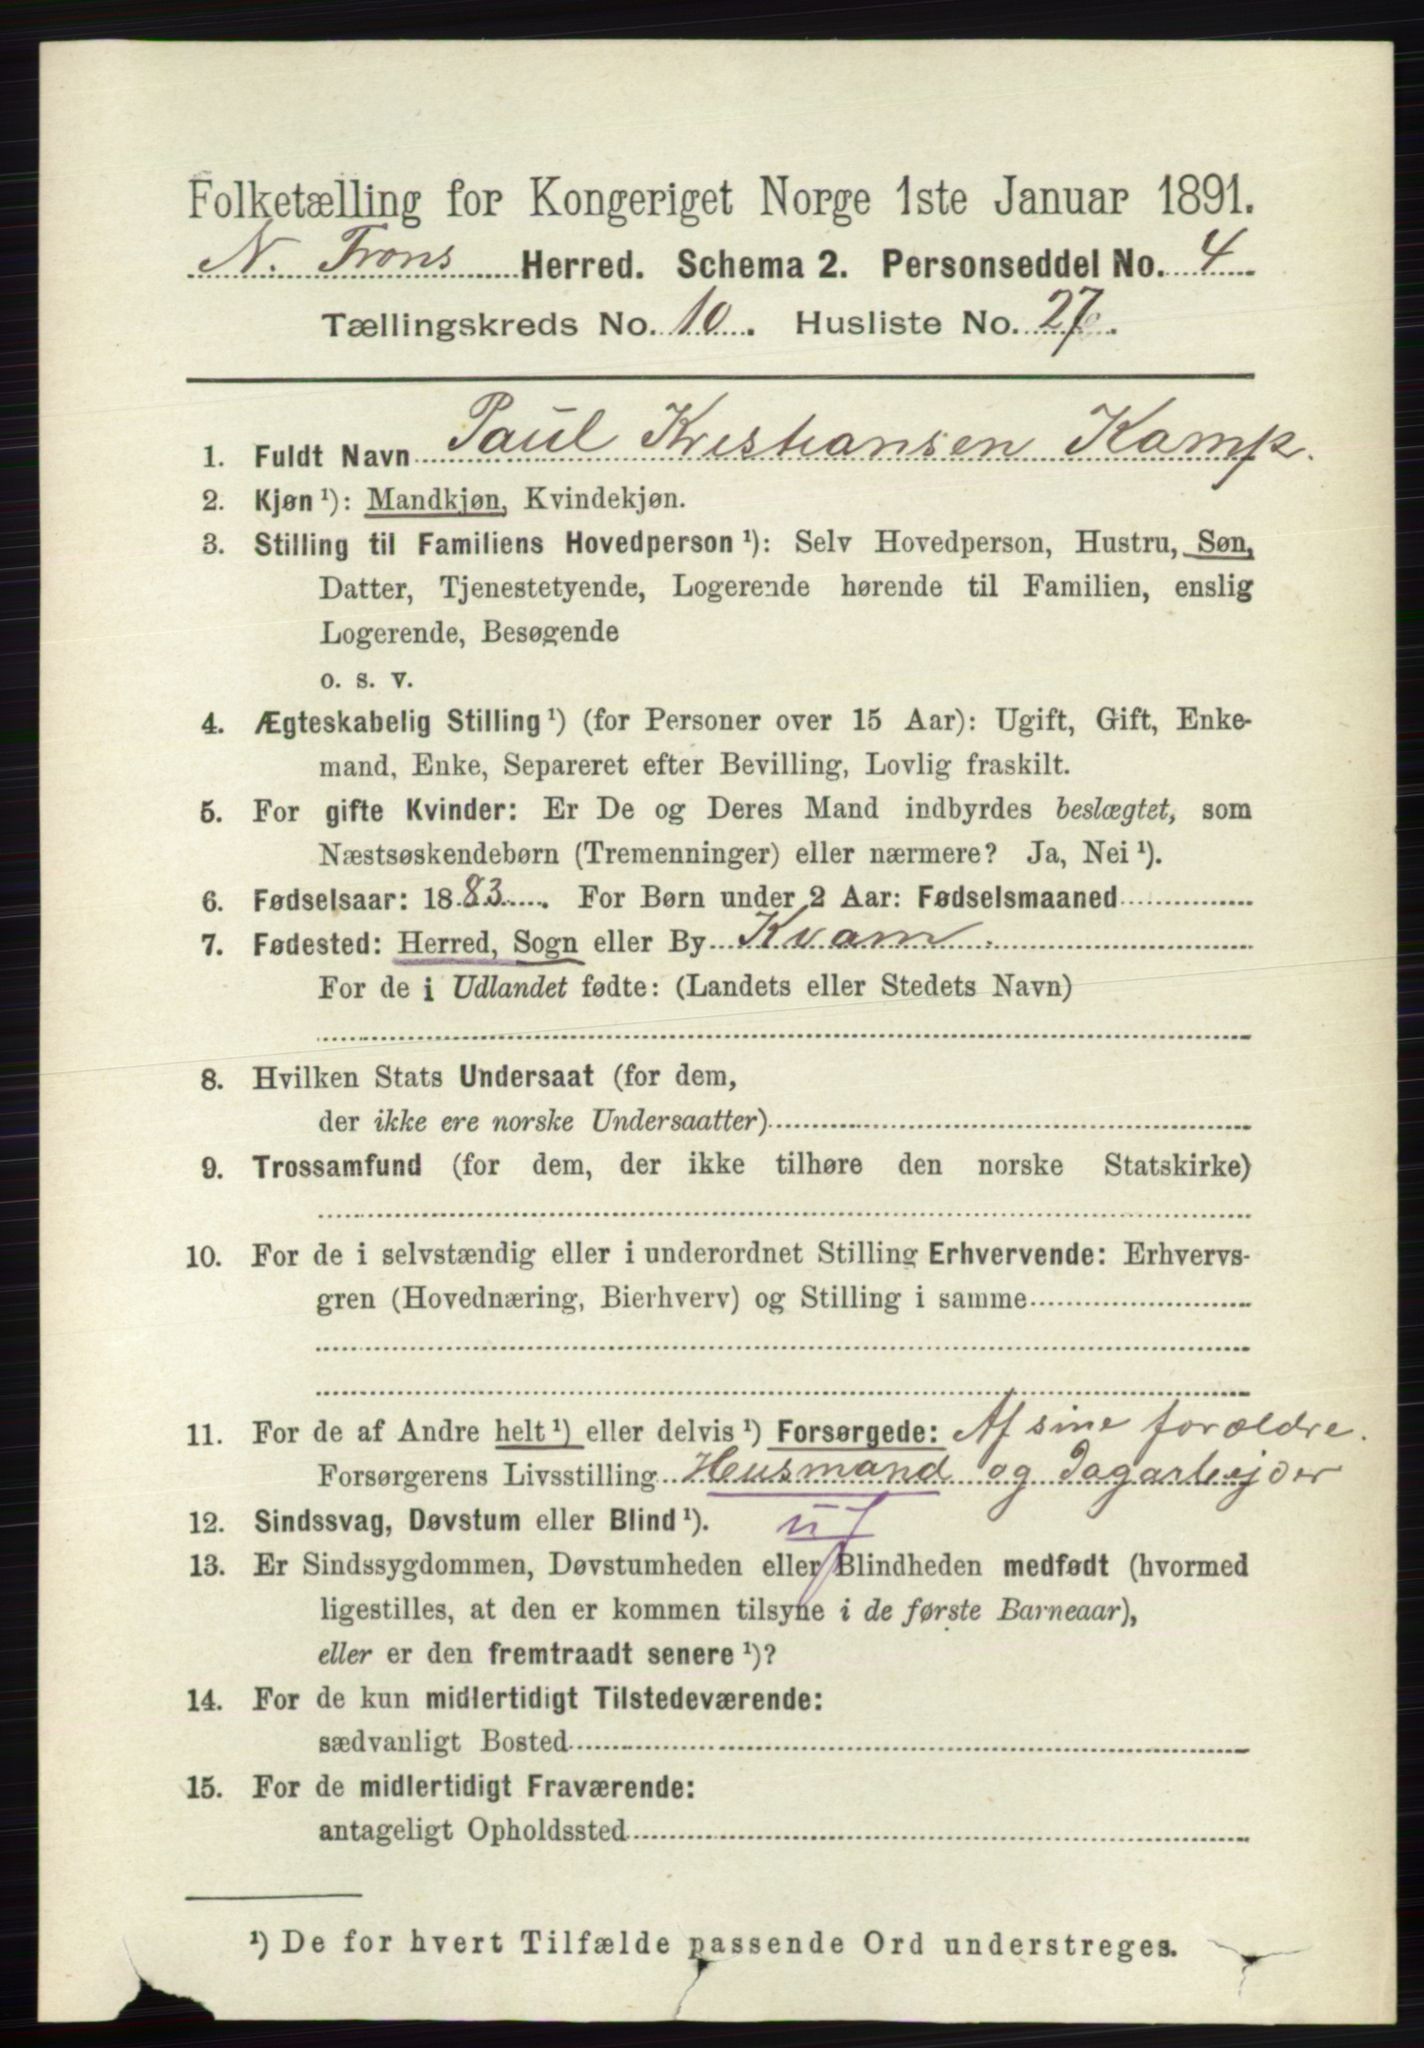 Folketælling for Kongeriget Norge 1ste Januar 1891.
N. Frons Herred. Schema 2. Personseddel No. 4
Tællingskreds No. 10. Husliste No. 27.
1. Fuldt Navn Paul Kristiansen Kamp.
2. Kjøn ¹): Mandkjøn, Kvindekjøn.
3. Stilling til Familiens Hovedperson ¹): Selv Hovedperson, Hustru, Søn,
Datter, Tjenestetyende, Logerende hørende til Familien, enslig
Logerende, Besøgende
o. s. v.
4. Ægteskabelig Stilling ¹) (for Personer over 15 Aar): Ugift, Gift, Enke-
mand, Enke, Separeret efter Bevilling, Lovlig fraskilt.
5. For gifte Kvinder: Er De og Deres Mand indbyrdes beslægtet, som
Næstsøskendebørn (Tremenninger) eller nærmere? Ja, Nei ¹).
6. Fødselsaar: 1883. For Børn under 2 Aar: Fødselsmaaned
7. Fødested: Herred, Sogn eller By Kvam.
For de i Udlandet fødte: (Landets eller Stedets Navn)
8. Hvilken Stats Undersaat (for dem,
der ikke ere norske Undersaatter)
9. Trossamfund (for dem, der ikke tilhøre den norske Statskirke)
10. For de i selvstændig eller i underordnet Stilling Erhvervende: Erhvervs-
gren (Hovednæring, Bierhverv) og Stilling i samme
11. For de af Andre helt ¹) eller delvis ¹) Forsørgede: Af sine forældre.
Forsørgerens Livsstilling Husmand og Dagarbejder
12. Sindssvag, Døvstum eller Blind ¹).
13. Er Sindssygdommen, Døvstumheden eller Blindheden medfødt (hvormed
ligestilles, at den er kommen tilsyne i de første Barneaar),
eller er den fremtraadt senere ¹)?
14. For de kun midlertidigt Tilstedeværende:
sædvanligt Bosted
15. For de midlertidigt Fraværende:
antageligt Opholdssted
¹) De for hvert Tilfælde passende Ord understreges.